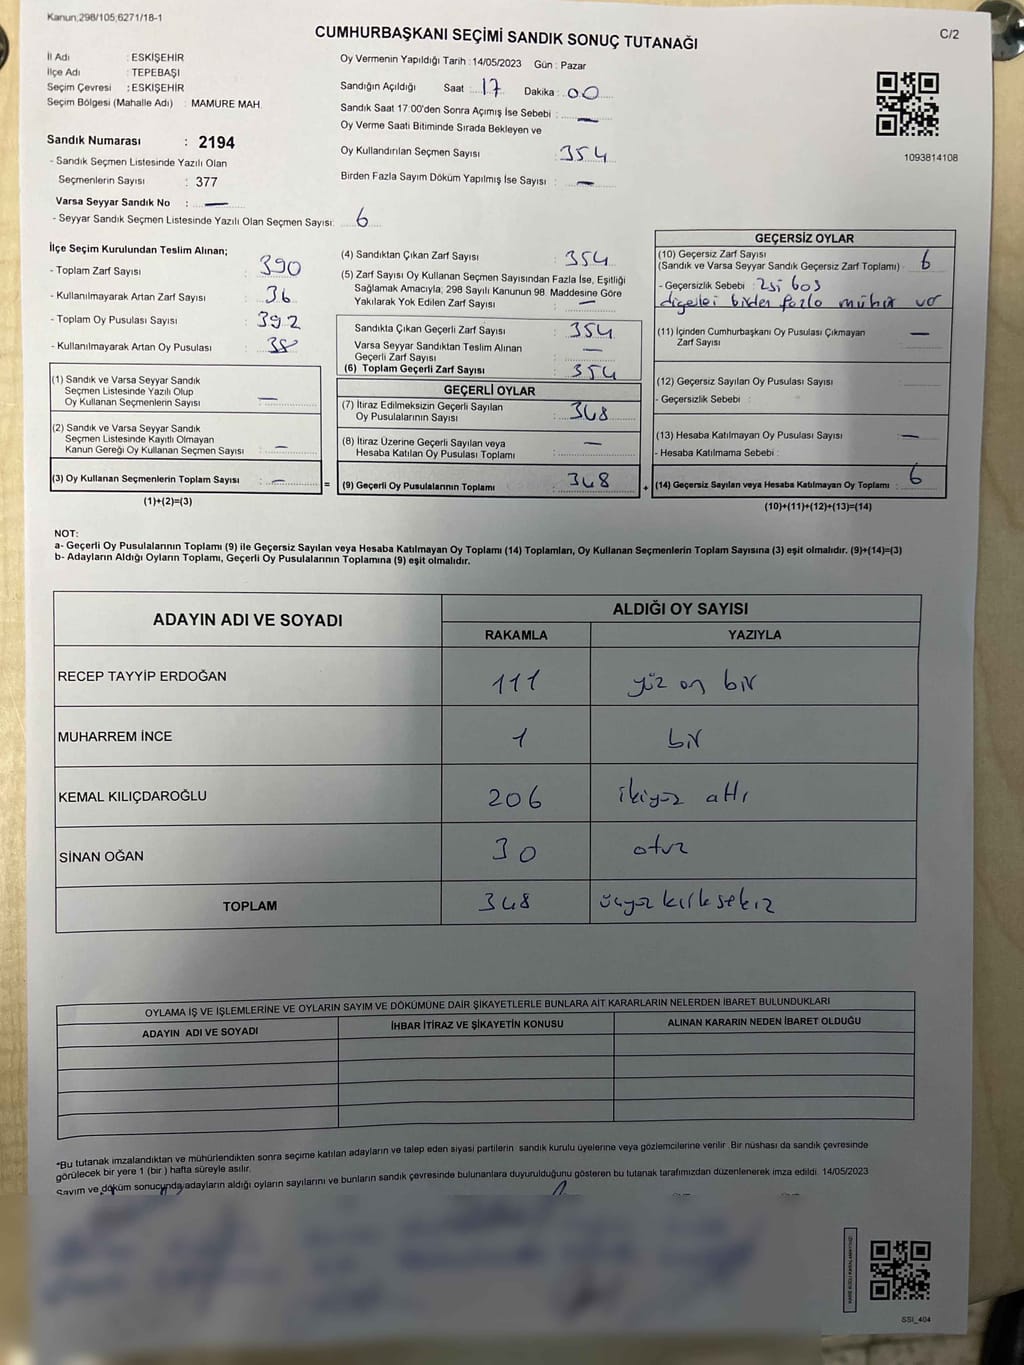 Kanun;298/105;6271/18-1
CUMHURBAŞKANI SEÇİMİ SANDIK SONUÇ TUTANAĞI
C/2
İl Adı : ESKİŞEHİR
İlçe Adı : TEPEBAŞI
Seçim Çevresi : ESKİŞEHİR
Seçim Bölgesi (Mahalle Adı) : MAMURE MAH.
Sandık Numarası : 2194
- Sandık Seçmen Listesinde Yazılı Olan
Seçmenlerin Sayısı : 377
Varsa Seyyar Sandık No : —
- Seyyar Sandık Seçmen Listesinde Yazılı Olan Seçmen Sayısı: 6
Oy Vermenin Yapıldığı Tarih : 14/05/2023 Gün : Pazar
Sandığın Açıldığı Saat : 17 Dakika : 00
Sandık Saat 17:00'den Sonra Açımış İse Sebebi : —
Oy Verme Saati Bitiminde Sırada Bekleyen ve
Oy Kullandırılan Seçmen Sayısı : 354
Birden Fazla Sayım Döküm Yapılmış İse Sayısı : —
1093814108
İlçe Seçim Kurulundan Teslim Alınan;
- Toplam Zarf Sayısı : 390
- Kullanılmayarak Artan Zarf Sayısı : 36
- Toplam Oy Pusulası Sayısı : 392
- Kullanılmayarak Artan Oy Pusulası : 38
(1) Sandık ve Varsa Seyyar Sandık
Seçmen Listesinde Yazılı Olup
Oy Kullanan Seçmenlerin Sayısı : —
(2) Sandık ve Varsa Seyyar Sandık
Seçmen Listesinde Kayıtlı Olmayan
Kanun Gereği Oy Kullanan Seçmen Sayısı : —
(3) Oy Kullanan Seçmenlerin Toplam Sayısı : —
(1)+(2)=(3)
(4) Sandıktan Çıkan Zarf Sayısı : 354
(5) Zarf Sayısı Oy Kullanan Seçmen Sayısından Fazla İse, Eşitliği
Sağlamak Amacıyla; 298 Sayılı Kanunun 98. Maddesine Göre
Yakılarak Yok Edilen Zarf Sayısı : —
Sandıkta Çıkan Geçerli Zarf Sayısı : 354
Varsa Seyyar Sandıktan Teslim Alınan
Geçerli Zarf Sayısı : —
(6) Toplam Geçerli Zarf Sayısı : 354
GEÇERLİ OYLAR
(7) İtiraz Edilmeksizin Geçerli Sayılan
Oy Pusulalarının Sayısı : 348
(8) İtiraz Üzerine Geçerli Sayılan veya
Hesaba Katılan Oy Pusulası Toplamı : —
= (9) Geçerli Oy Pusulalarının Toplamı : 348
GEÇERSİZ OYLAR
(10) Geçersiz Zarf Sayısı
(Sandık ve Varsa Seyyar Sandık Geçersiz Zarf Toplamı) : 6
- Geçersizlik Sebebi : 2si boş
diğerleri birden fazla mühür var
(11) İçinden Cumhurbaşkanı Oy Pusulası Çıkmayan
Zarf Sayısı : —
(12) Geçersiz Sayılan Oy Pusulası Sayısı :
- Geçersizlik Sebebi :
(13) Hesaba Katılmayan Oy Pusulası Sayısı : —
- Hesaba Katılmama Sebebi :
+ (14) Geçersiz Sayılan veya Hesaba Katılmayan Oy Toplamı : 6
(10)+(11)+(12)+(13)=(14)
NOT:
a- Geçerli Oy Pusulalarının Toplamı (9) ile Geçersiz Sayılan veya Hesaba Katılmayan Oy Toplamı (14) Toplamları, Oy Kullanan Seçmenlerin Toplam Sayısına (3) eşit olmalıdır. (9)+(14)=(3)
b- Adayların Aldığı Oyların Toplamı, Geçerli Oy Pusulalarının Toplamına (9) eşit olmalıdır.
ADAYIN ADI VE SOYADI
ALDIĞI OY SAYISI
RAKAMLA YAZIYLA
RECEP TAYYİP ERDOĞAN 111 yüz on bir
MUHARREM İNCE 1 bir
KEMAL KILIÇDAROĞLU 206 ikiyüz altı
SİNAN OĞAN 30 otuz
TOPLAM 348 üçyüz kırk sekiz
OYLAMA İŞ VE İŞLEMLERİNE VE OYLARIN SAYIM VE DÖKÜMÜNE DAİR ŞİKAYETLERLE BUNLARA AİT KARARLARIN NELERDEN İBARET BULUNDUKLARI
ADAYIN ADI VE SOYADI İHBAR İTİRAZ VE ŞİKAYETİN KONUSU ALINAN KARARIN NEDEN İBARET OLDUĞU
*Bu tutanak imzalandıktan ve mühürlendikten sonra seçime katılan adayların ve talep eden siyasi partilerin sandık kurulu üyelerine veya gözlemcilerine verilir. Bir nüshası da sandık çevresinde
görülecek bir yere 1 (bir ) hafta süreyle asılır.
Sayım ve döküm sonucunda adayların aldığı oyların sayılarını ve bunların sandık çevresinde bulunanlara duyurulduğunu gösteren bu tutanak tarafımızdan düzenlenerek imza edildi. 14/05/2023
SSI_404